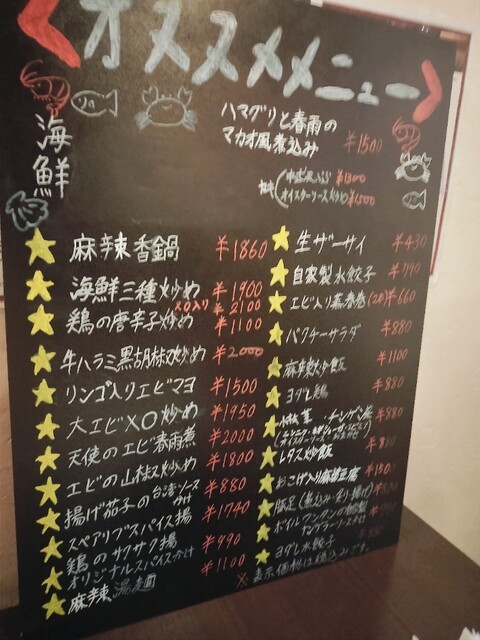 オススメメニュー
海鮮
ハマグリと春雨の
マカオ風煮込み ¥1500
¥1300
オイスターソース炒め ¥1500
麻辣香鍋 ¥1860
海鮮三種炒め ¥1900
XO入り ¥2100
鶏の唐辛子炒め ¥1100
牛ハラミ黒胡椒炒め ¥2000
リンゴ入りエビマヨ ¥1500
大エビXO炒め ¥1950
天使のエビ春雨煮 ¥2000
エビの山椒炒め ¥1800
揚げ茄子の台湾ソースかけ ¥880
スペアリブスパイス揚 ¥1740
鶏のサクサク揚 ¥990
オリジナルスパイスかけ
麻辣湯麺 ¥1100
生ザーサイ ¥430
自家製水餃子 ¥790
エビ入り蒸春巻(2本)¥660
パクチーサラダ ¥880
麻辣炒飯 ¥1100
ヨダレ鶏 ¥880
チンゲン菜 ¥880
レタス炒飯
おこげ入り麻婆豆腐
豚足(煮込み・揚げ)
ボイルワンタンの
ヨダレ水餃子
※表示価格は税込です。